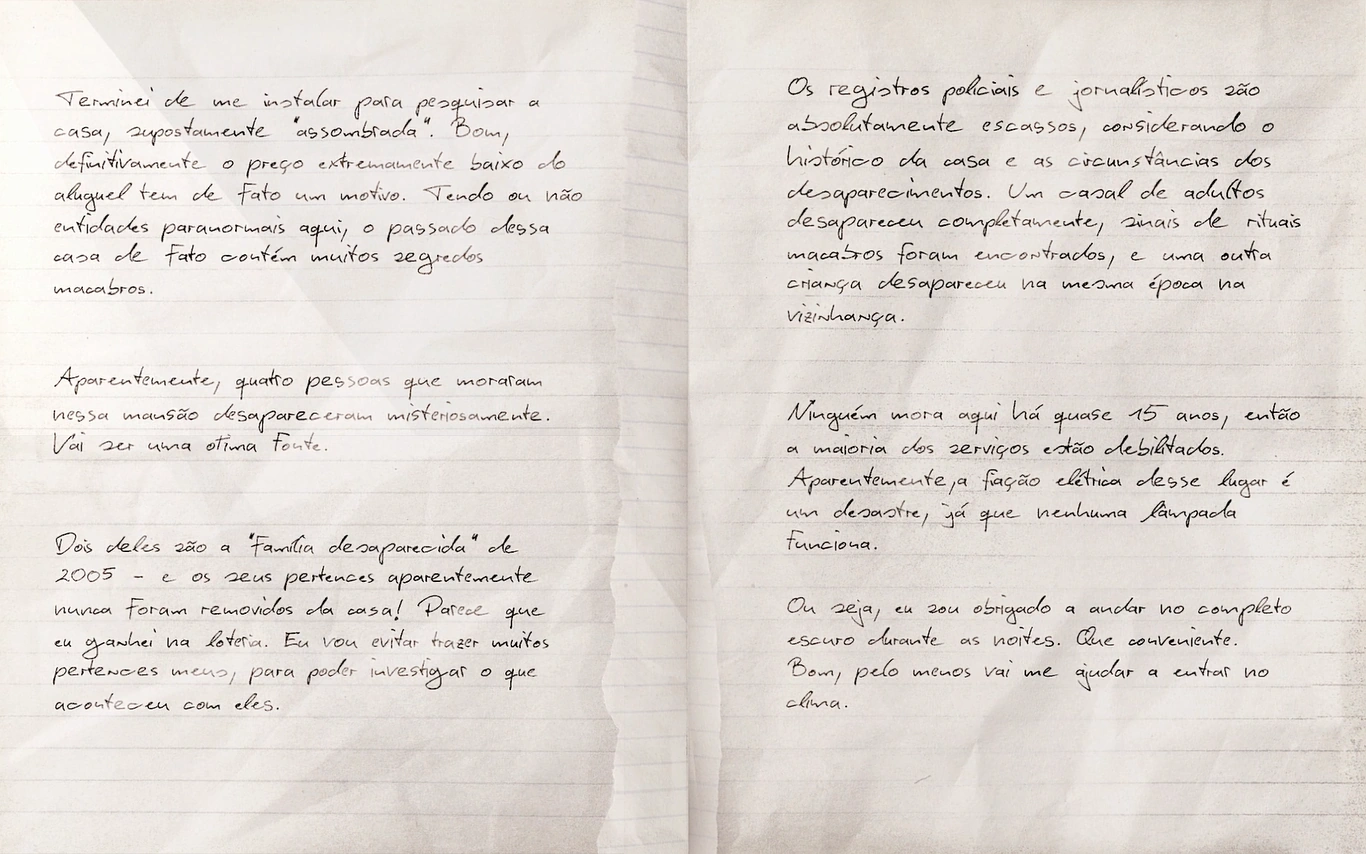 Terminei de me instalar para pesquisar a
casa, supostamente "assombrada". Bom,
definitivamente o preço extremamente baixo do
aluguel tem de fato um motivo. Tendo ou não
entidades paranormais aqui, o passado dessa
casa de fato contém muitos segredos
macabros.
Aparentemente, quatro pessoas que moraram
nessa mansão desapareceram misteriosamente.
Vai ser uma otima fonte.
Dois deles são a "Família desaparecida" de
2005 - e os seus pertences aparentemente
nunca foram removidos da casa! Parece que
eu ganhei na loteria. Eu vou evitar trazer muitos
pertences meus, para poder investigar o que
aconteceu com eles.
Os registros policiais e jornalísticos são
absolutamente escassos, considerando o
histórico da casa e as circunstâncias dos
desaparecimentos. Um casal de adultos
desapareceu completamente, sinais de rituais
macabros foram encontrados, e uma outra
criança desapareceu na mesma época na
vizinhança.
Ninguém mora aqui há quase 15 anos, então
a maioria dos serviços estão debilitados.
Aparentemente,a fiação elétrica desse lugar é
um desastre, já que nenhuma lâmpada
funciona.
Ou seja, eu sou obrigado a andar no completo
escuro durante as noites. Que conveniente.
Bom, pelo menos vai me ajudar a entrar no
clima.